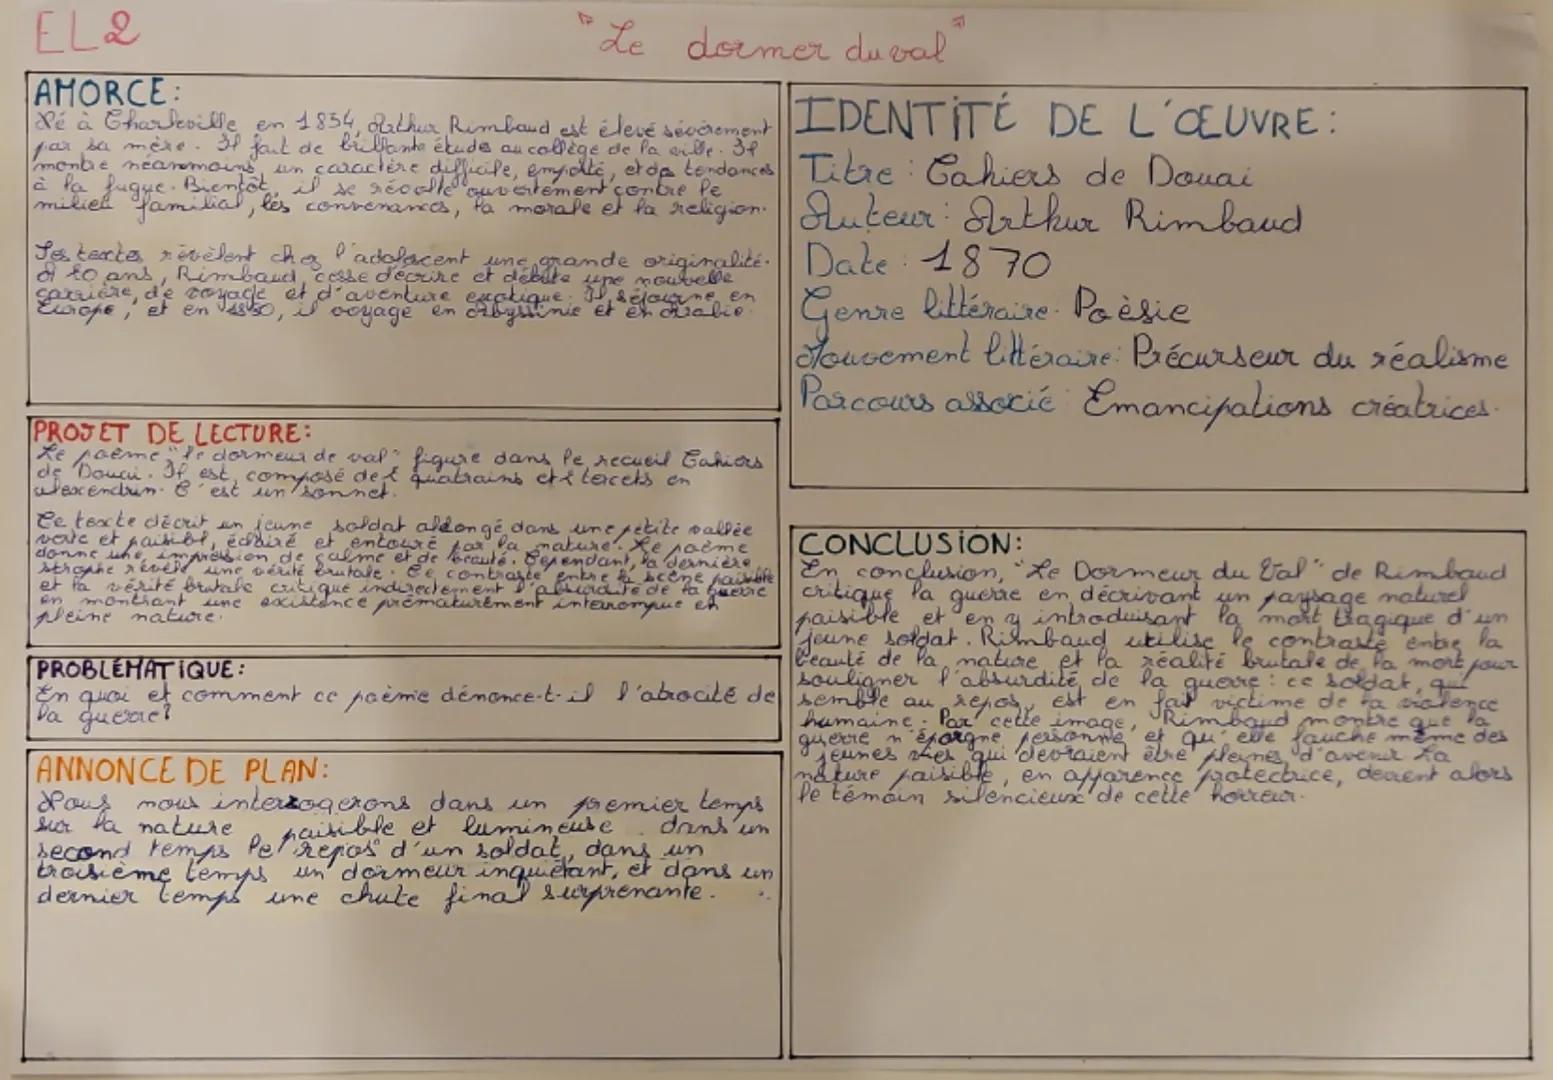 EL2
"Le dormer du val"
AMORCE:
Né à Charleville en 1854, Arthur Rimbaud est élevé sévèrement
par sa mère. Il fait de brillante études au collège de la ville. Il
montre néanmoins un caractère difficile, emporté, et des tendances
à la fugue. Bientôt, il se révolte ouvertement contre le
milieu familial, les convenances, la morale et la religion.
Ses textes révèlent chez l'adolescent une grande originalité.
A 20 ans, Rimbaud cesse d'écrire et débute une nouvelle
carrière, de voyage et d'aventure exotique. Il séjourne en
Europe, et en 1880, il voyage en Abyssinie et en Arabie.
PROJET DE LECTURE:
Le poème "le dormeur de val" figure dans le recueil Cahiers
de Douai. Il est composé de 2 quatrains et 2 tercets en
alexendrin. C'est un sonnet.
Ce texte décrit un jeune soldat allongé dans une petite vallée
verte et paisibl, éclairé et entouré par la nature. Le poème
donne une impression de calme et de beauté. Cependant, la dernière
strophe révèle une vérité brutale. Ce contraste entre la scène paisible
et la vérité brutale critique indirectement l'absurdité de la guerre
en montrant une existence prématurément interrompue en
pleine nature.
PROBLÉMATIQUE:
En quoi et comment ce poème dénonce-t-il l'atrocité de
la guerre?
ANNONCE DE PLAN:
Nous nous interrogerons dans un premier temps
sur la nature paisible et lumineuse. dans un
second temps le repos d'un soldat, dans un
troisième temps un dormeur inquiétant, et dans un
dernier temps une chute final surprenante.
IDENTITÉ DE L'ŒUVRE:
Titre: Cahiers de Douai
Auteur: Arthur Rimbaud
Date: 1870
Genre littéraire: Poèsie
Mouvement littéraire: Précurseur du réalisme
Parcours associé: Emancipations créatrices.
CONCLUSION:
En conclusion, "Le Dormeur du Val" de Rimbaud
critique la guerre en décrivant un paysage naturel
paisible et en y introduisant la mort tragique d'un
jeune soldat. Rimbaud utilise le contraste entre la
beauté de la nature et la réalité brutale de la mort pour
souligner l'absurdité de la guerre: ce soldat, qui
semble au repos, est en fait victime de la violence
humaine. Par cette image, Rimbaud montre que la
guerre n'épargne personne et qu'elle fauche même des
jeunes vies qui devraient être pleines d'avenir. La
nature paisible, en apparence protectrice, devient alors
le témoin silencieux de cette horreur.